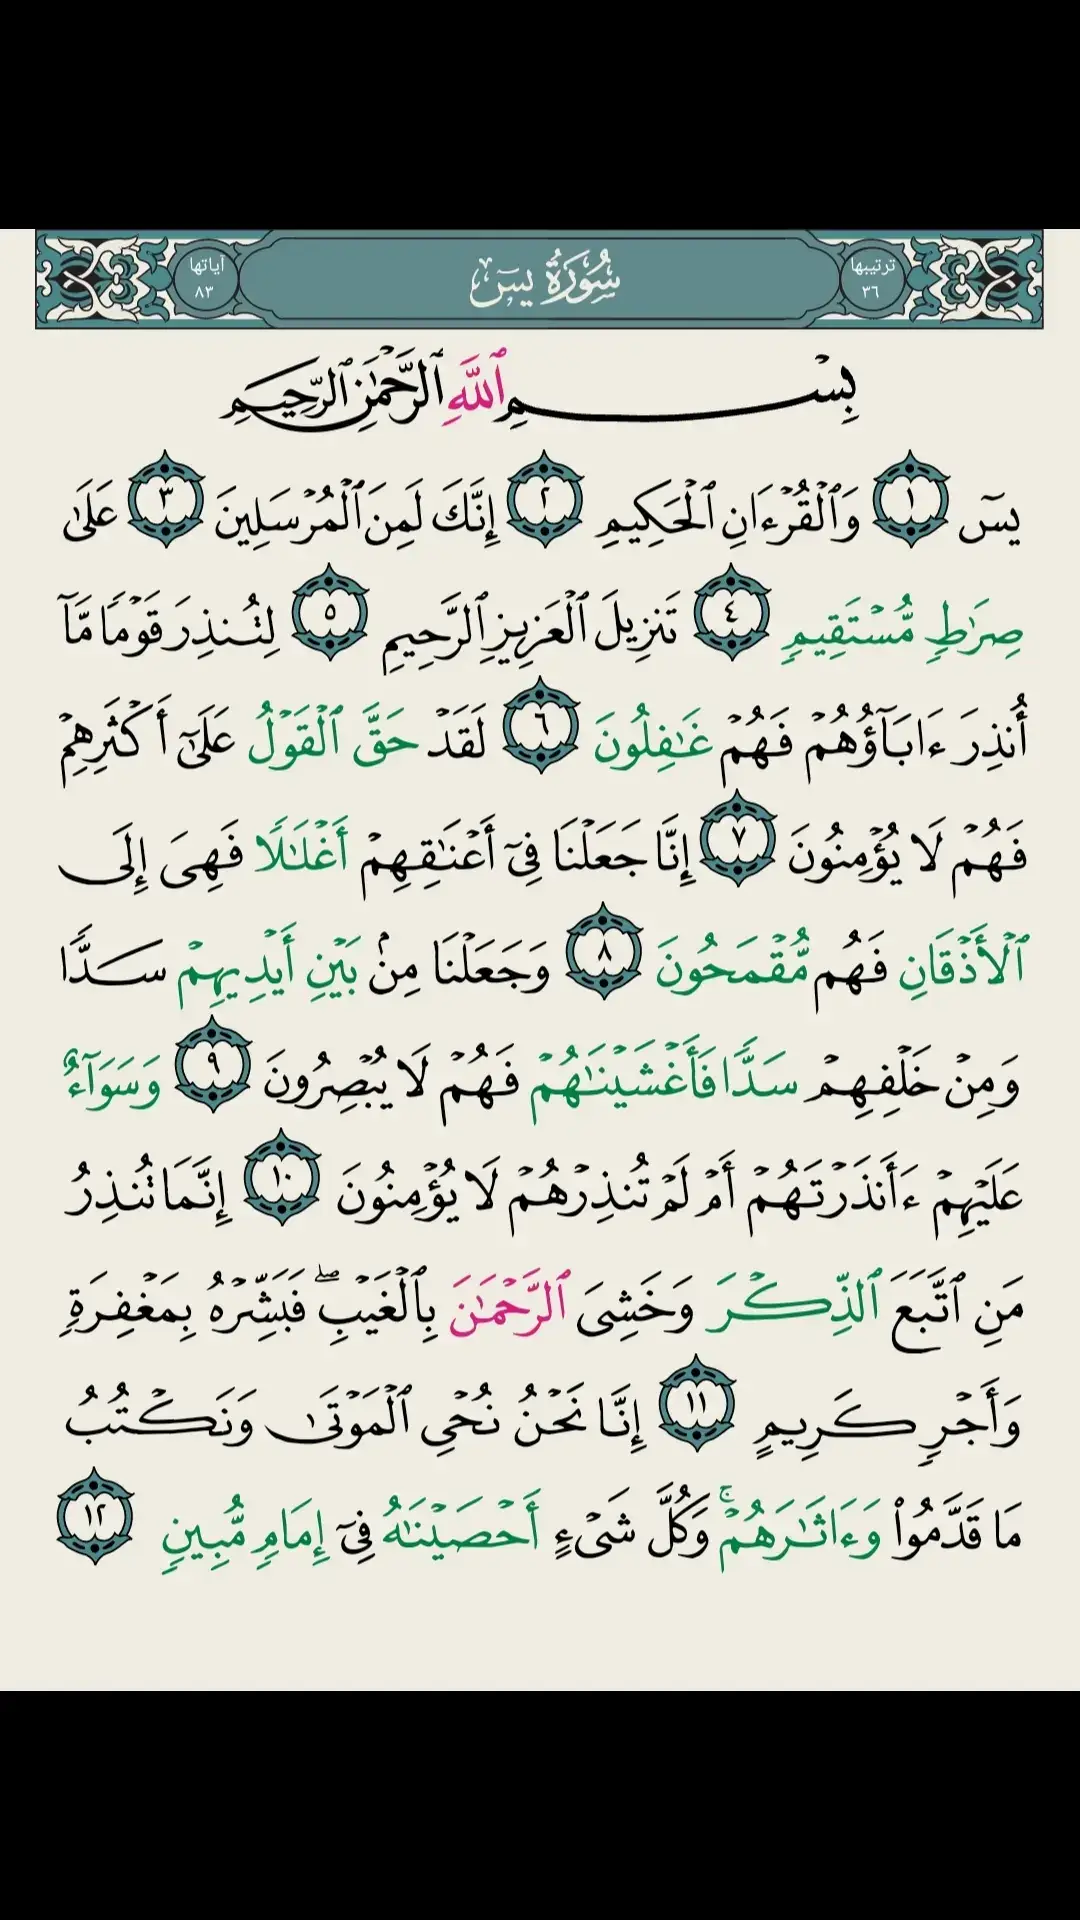 ترتيبها
٣٦
سُورَةُ يسٓ
آياتها
٨٣
بِسْمِ ٱللَّهِ ٱلرَّحْمَٰنِ ٱلرَّحِيمِ
يسٓ ١ وَٱلْقُرْءَانِ ٱلْحَكِيمِ ٢ إِنَّكَ لَمِنَ ٱلْمُرْسَلِينَ ٣ عَلَىٰ
صِرَٰطٍ مُّسْتَقِيمٍ ٤ تَنزِيلَ ٱلْعَزِيزِ ٱلرَّحِيمِ ٥ لِتُنذِرَ قَوْمًا مَّآ
أُنذِرَ ءَابَآؤُهُمْ فَهُمْ غَٰفِلُونَ ٦ لَقَدْ حَقَّ ٱلْقَوْلُ عَلَىٰٓ أَكْثَرِهِمْ
فَهُمْ لَا يُؤْمِنُونَ ٧ إِنَّا جَعَلْنَا فِىٓ أَعْنَٰقِهِمْ أَغْلَٰلًا فَهِىَ إِلَى
ٱلْأَذْقَانِ فَهُم مُّقْمَحُونَ ٨ وَجَعَلْنَا مِنۢ بَيْنِ أَيْدِيهِمْ سَدًّا
وَمِنْ خَلْفِهِمْ سَدًّا فَأَغْشَيْنَٰهُمْ فَهُمْ لَا يُبْصِرُونَ ٩ وَسَوَآءٌ
عَلَيْهِمْ ءَأَنذَرْتَهُمْ أَمْ لَمْ تُنذِرْهُمْ لَا يُؤْمِنُونَ ١٠ إِنَّمَا تُنذِرُ
مَنِ ٱتَّبَعَ ٱلذِّكْرَ وَخَشِىَ ٱلرَّحْمَٰنَ بِٱلْغَيْبِ ۖ فَبَشِّرْهُ بِمَغْفِرَةٍ
وَأَجْرٍ كَرِيمٍ ١١ إِنَّا نَحْنُ نُحْىِ ٱلْمَوْتَىٰ وَنَكْتُبُ
مَا قَدَّمُوا۟ وَءَاثَٰرَهُمْ ۚ وَكُلَّ شَىْءٍ أَحْصَيْنَٰهُ فِىٓ إِمَامٍ مُّبِينٍ ١٢